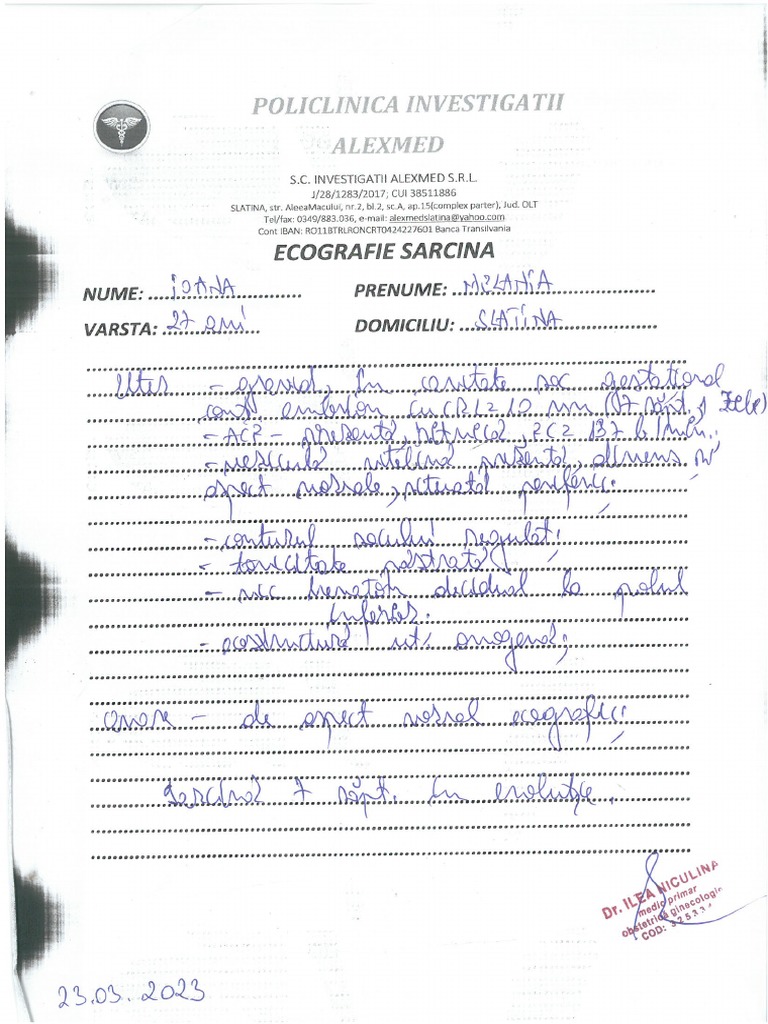 POLICLINICA INVESTIGATII
ALEXMED
S.C. INVESTIGATII ALEXMED S.R.L.
J/28/1283/2017; CUI 38511886
SLATINA, str. AleeaMacului, nr.2, bl.2, sc.A, ap.15(complex parter), Jud. OLT
Tel/fax: 0349/883.036, e-mail: alexmedslatina@yahoo.com
Cont IBAN: RO11BTRLRONCRT0424227601 Banca Transilvania
ECOGRAFIE SARCINA
NUME: IOANA PRENUME: MELANIA
VARSTA: 27 ani DOMICILIU: SLATINA
Uter - gravid, în cavitate sac gestational
embrion cu CRL = 10 mm (07 săpt. zile)
- ACF - prezentă, ritmică, FC = 137 b/min.;
- veziculă vitelină prezentă, dimens și
aspect normale, situată periferic;
- conturul sacului regulat;
- tonicitate păstrată;
- mic hematom decidual la polul
inferior.
- ecostructură ut. omogenă;
anexe - de aspect normal ecografic;
Sarcină 7 săpt. în evoluție.
Dr. ILEA NICULINA
medic primar
obstetrica ginecologie
COD:
23.03.2023